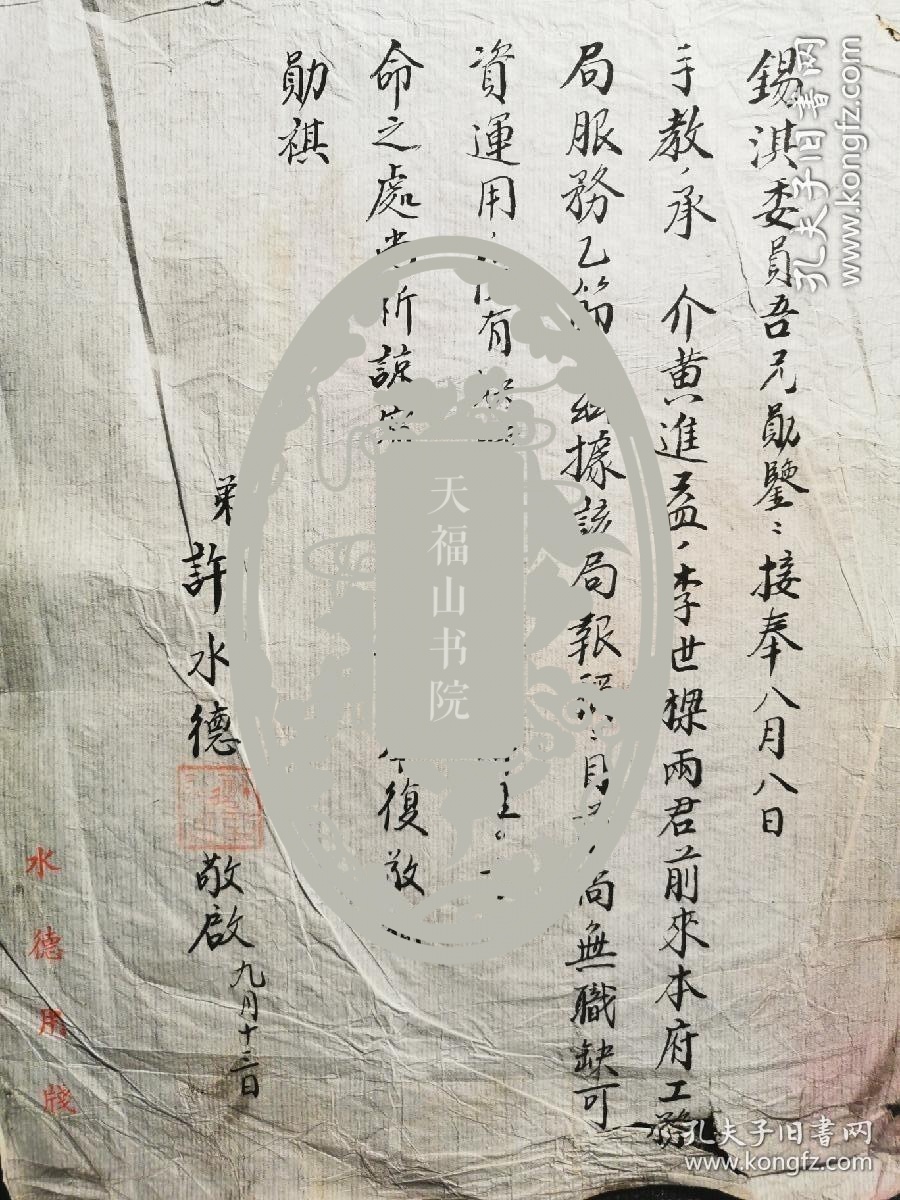 錫淇委員吾兄勛鑒：接奉八月八日
手教，承　介黃進益，李世樑兩君前來本府工務
局服務乙節　據該局報　目　，尚無職缺可
資運用，　有
命之處　祈諒　復敬
勛祺
弟許水德敬啟九月十三日
水德用牋
天福山书院
孔夫子旧書网
www.kongfz.com
孔夫子旧書网
www.kongfz.com